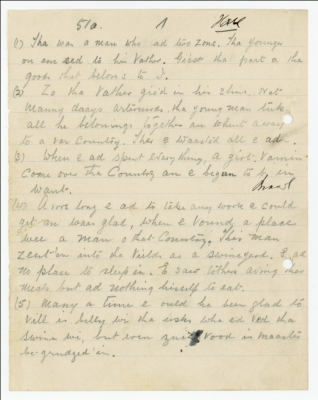 51a. 1
(1) Tha was a man who ad two zons. Tha younger
on em sed to his Vather. Give tha part o tha
goods that belons to I.
(2) Zo tha Vather giv'd in his zhire. Not
Manny daays arterwards tha young man tuk
all he belonings together an whent away
to a var Country. Ther e wasted all e ad.
(3) When e ad spent everything, a girt Vammin
come over the Country an e began to be in
want.
(4) A vore long e ad to take any work e could
get an was glad, when e vound a place
wee a man o that Country. This man
zent en into the Vields as a swineyard. E ad
no place to sleep in. E saw others aving thes
meals but ad nothing hisself to eat.
(5) Many a time e ould he been glad to
vill is belly wi tha usks wha ed ved tha
swine wi, but even zuch vood in maastes
be-grudged en.